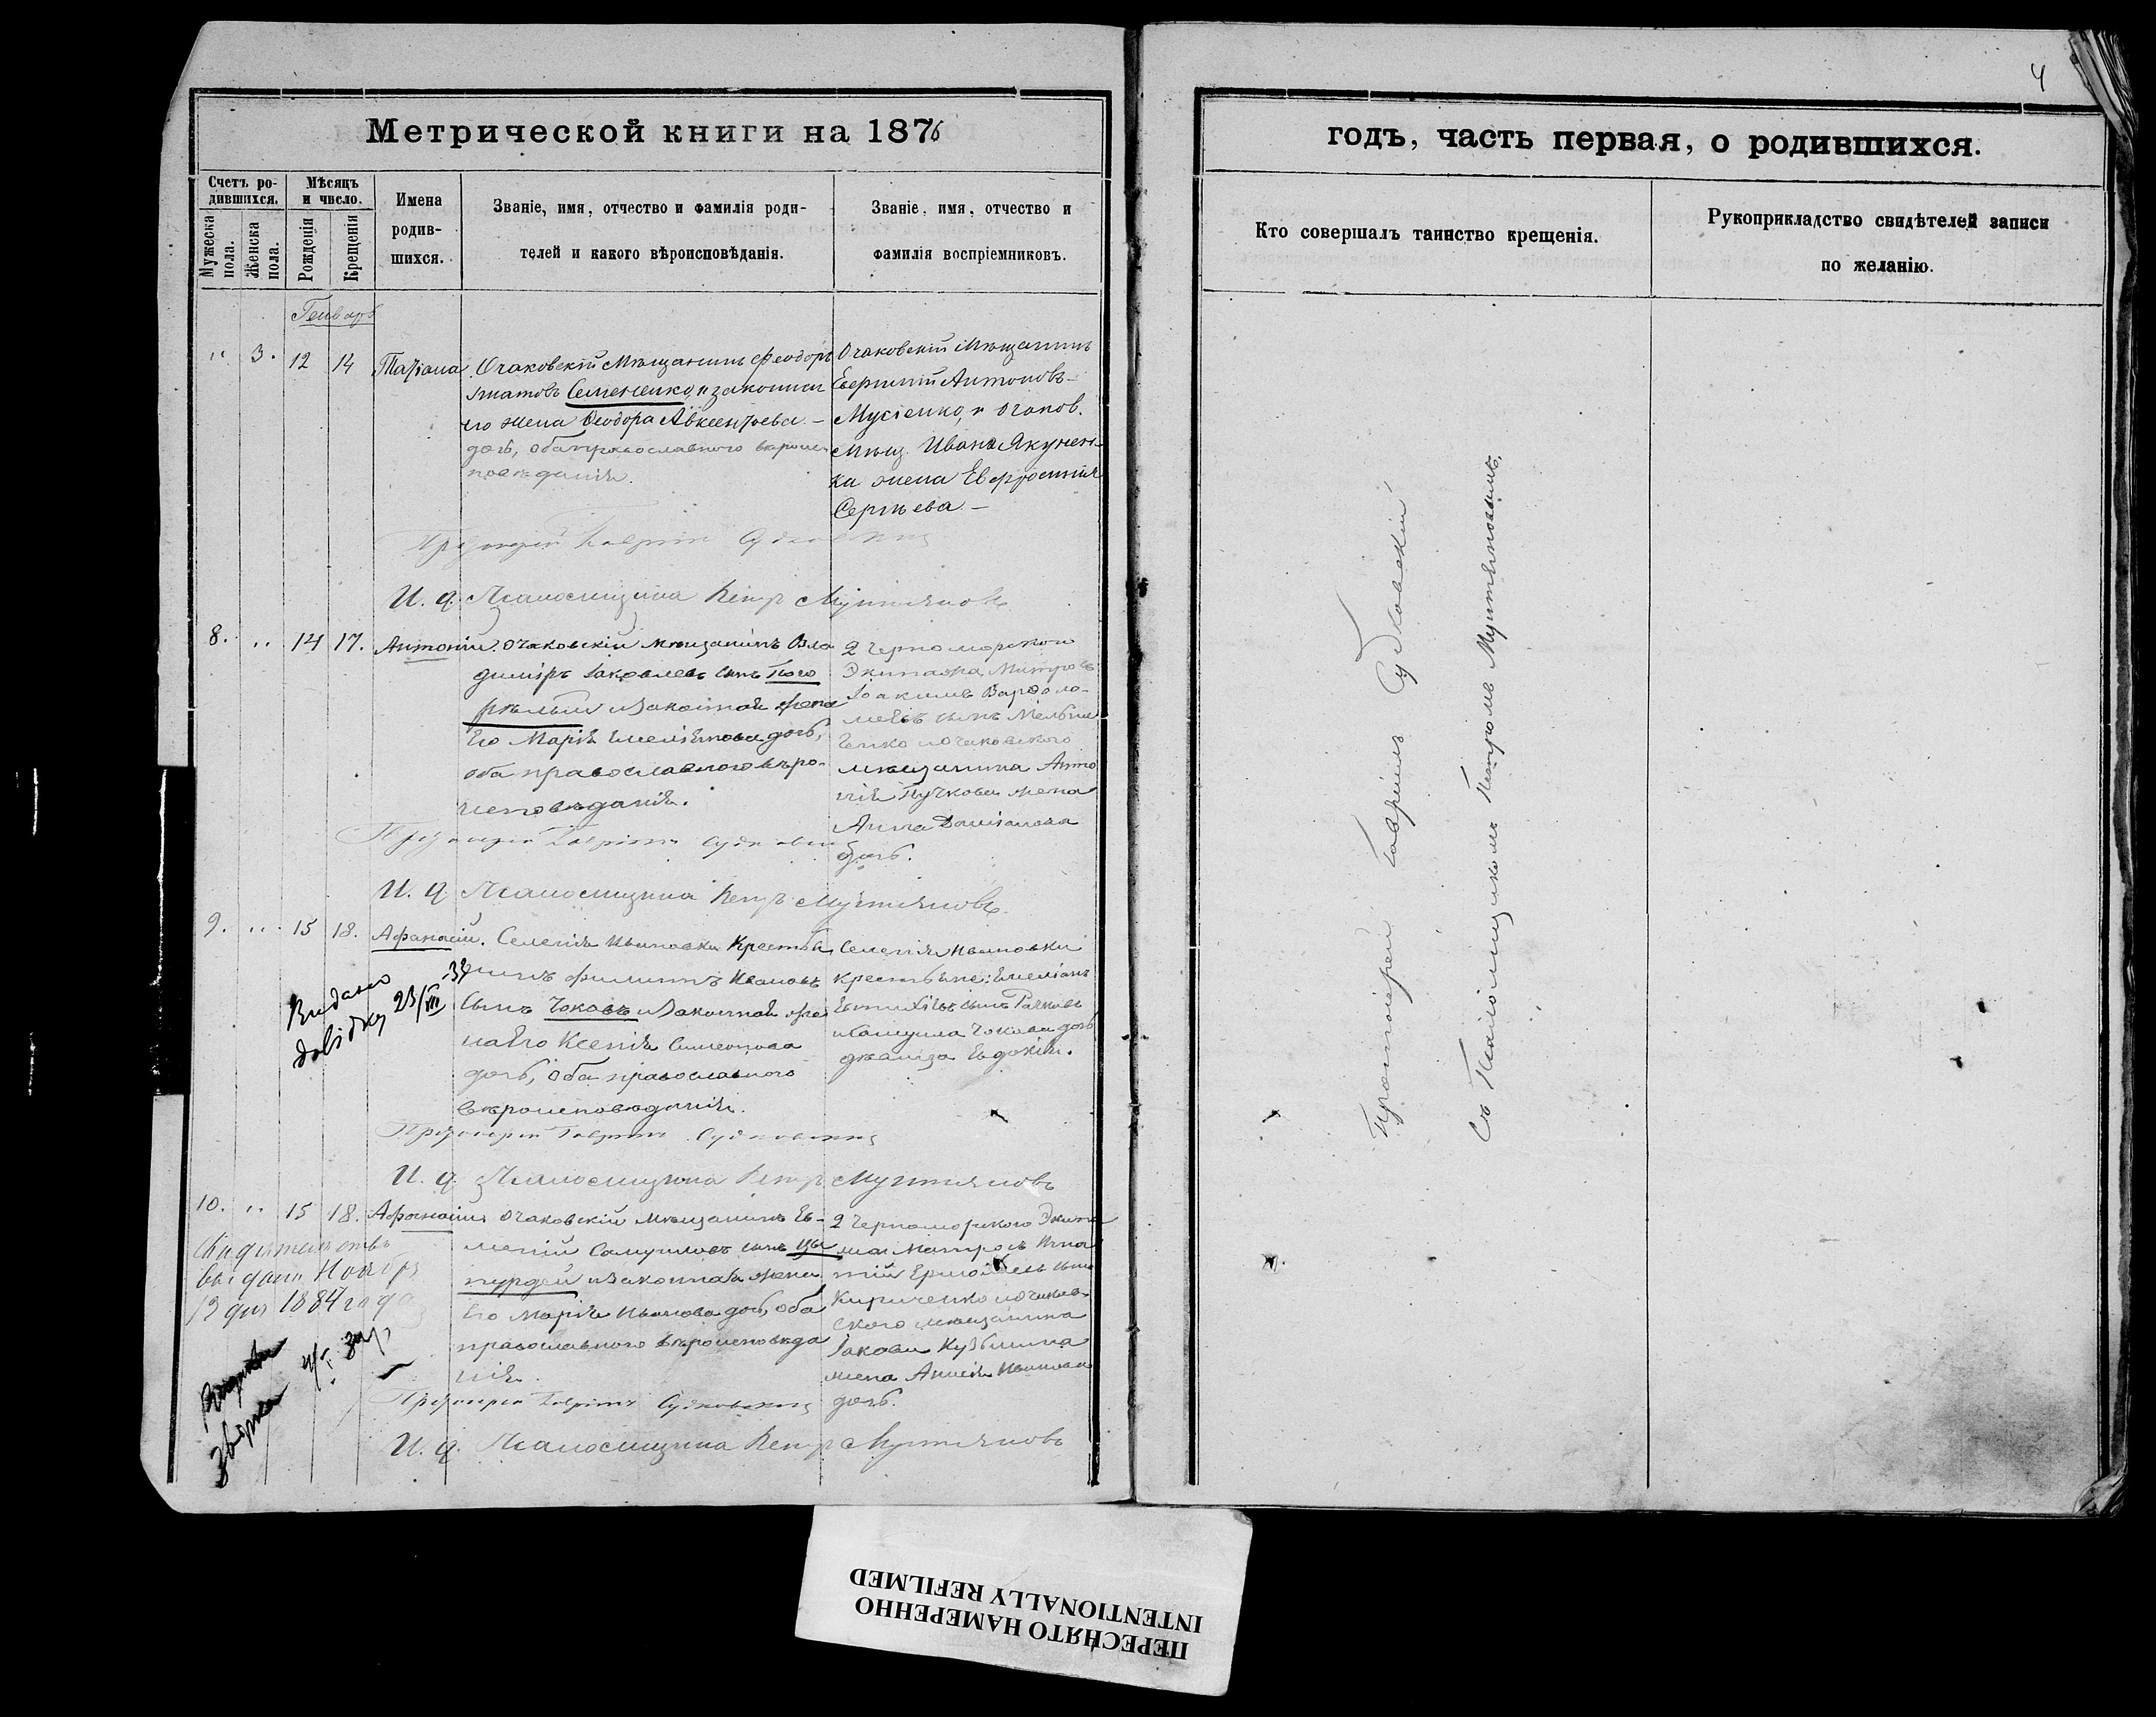 Метрической книги на 1876
годъ, часть первая, о родившихся.
4
Счетъ ро-
дившихся.
Мѣсяцъ
и число.
Мужеска
пола.
Женска
пола.
Рожденія
Крещенія
Имена
родив-
шихся.
Званіе, имя, отчество и фамилія роди-
телей и какого вѣроисповѣданія.
Званіе, имя, отчество и
фамилія воспріемниковъ.
Кто совершалъ таинство крещенія.
Рукоприкладство свидѣтелей записи
по желанію.
Генварь
" 3. 12 14 Татіана
Очаковскій Мѣщанинъ Феодоръ
Игнатовъ Семененко, и законная
его жена Феодора Авксентьева
дочь, оба православного вѣроис-
повѣданія.
Очаковскій Мѣщанинъ
Евфимій Антоновъ
Мусіенко, и Очаков.
мѣщ. Ивана Якунен-
ка жена Евфросинія
Сергѣева
Протоіерей Гавріилъ Судковскій
И. д. Псаломщика Петръ Мунтяновъ
8. " 14 17. Антоній
Очаковскій мѣщанинъ Вла
диміръ Іаковлевъ сынъ Пого
рѣлый и законная жена
Его Марія Емеліянова дочь,
оба православного вѣро-
исповѣданія.
2 Черноморского
Экипажа Матросъ
Іоакимъ Варфоло-
меевъ сынъ Мельни
ченко и очаковского
мѣщанина Анто
нія Пучкова жена
Анна Даміанова
дочь.
Протоіерей Гавріилъ Судковскій
И. д. Псаломщика Петръ Мунтяновъ
9. " 15 18. Афанасій.
Селенія Ивановки Крестья
нинъ Филиппъ Ивановъ
сынъ Чоковъ и законная же
на Его Ксенія Симеонова
дочь, оба православного
вѣроисповѣданія.
Селенія Ивановки
крестьяне: Емеліанъ
Евтихіевъ сынъ Рачковъ
и Самуила Чокова дочь
дѣвица Евдокія.
Видано
довідку 23/VII -33
Протоіерей Гавріилъ Судковскій
И. д. Псаломщика Петръ Мунтяновъ
10. " 15 18. Афанасій
Очаковскій мѣщанинъ Ев-
мений Самуиловъ сынъ Цы
пурдей и законная жена
Его Марія Иванова дочь, оба
православного вѣроисповѣда
нія.
2 Черноморского Экипа
жа Матросъ Игна
тій Ермолаевъ сынъ
Кириченко и очаков-
ского мѣщанина
Іакова Кузьмина
жена Анисія Иванова
дочь.
Свидѣтельство
выдано Ноября
13 дня 1884 года
Протоіерей Гавріилъ Судковскій
И. д. Псаломщика Петръ Мунтяновъ
Протоіерей Гавріилъ Судковскій
Съ Псаломщикомъ Петромъ Мунтяновымъ.
ПЕРЕСНЯТО НАМЕРЕННО
INTENTIONALLY REFILMED